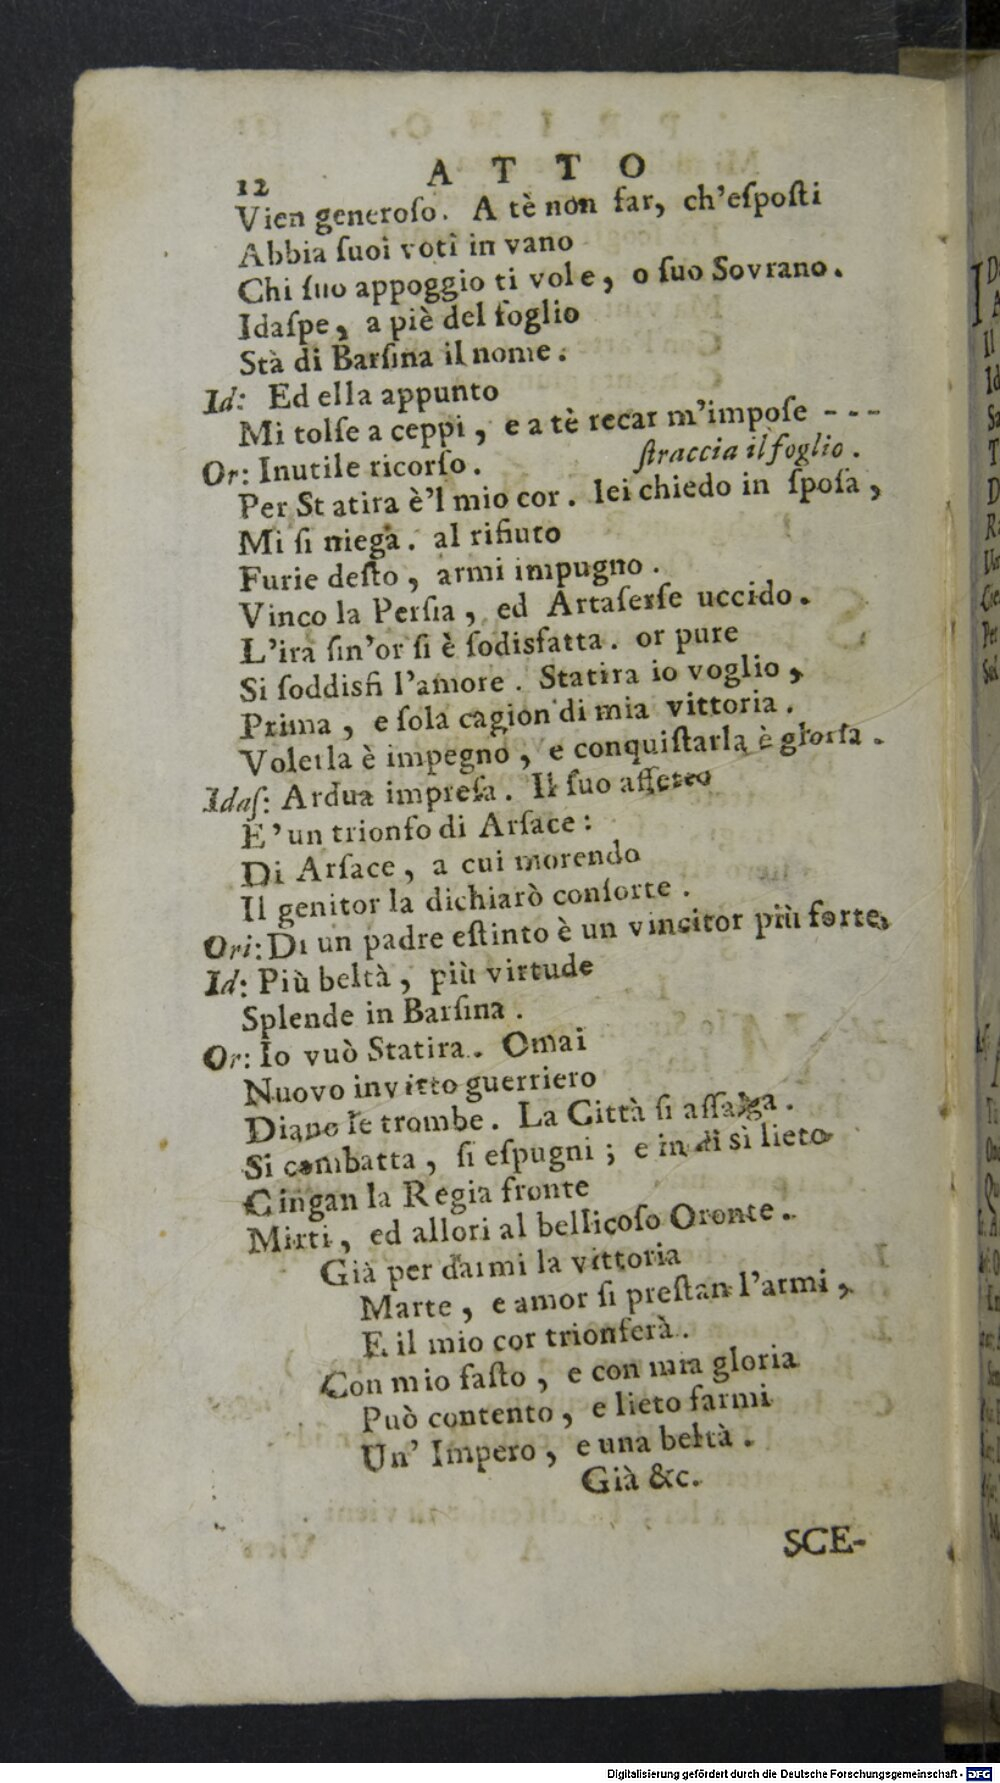 12 ATTO
Vien generoſo. A tè non far, ch'eſpoſti
Abbia ſuoi voti in vano
Chi ſuo appoggio ti vole, o ſuo Sovrano.
Idaſpe, a piè del foglio
Stà di Barſina il nome.
Id: Ed ella appunto
Mi tolſe a ceppi, e a tè recar m'impoſe - - -
Or: Inutile ricorſo. ſtraccia il foglio.
Per Statira è'l mio cor. lei chiedo in ſpoſa,
Mi ſi niega. al rifiuto
Furie deſto, armi impugno.
Vinco la Perſia, ed Artaſerſe uccido.
L'ira ſin'or ſi è ſodisfatta. or pure
Si ſoddisfi l'amore. Statira io voglio,
Prima, e ſola cagion di mia vittoria.
Volerla è impegno, e conquiſtarla è gloria.
Idaſ: Ardua impreſa. Il ſuo affetto
E'un trionfo di Arſace:
Di Arſace, a cui morendo
Il genitor la dichiarò conſorte.
Ori: Di un padre eſtinto è un vincitor più forte.
Id: Più beltà, più virtude
Splende in Barſina.
Or: Io vuò Statira. Omai
Nuovo invitto guerriero
Diano le trombe. La Città ſi aſſalga.
Si combatta, ſi eſpugni; e in dì sì lieto
Cingan la Regia fronte
Mirti, ed allori al bellicoſo Oronte.
Già per darmi la vittoria
Marte, e amor ſi preſtan l'armi,
E il mio cor trionferà.
Con mio faſto, e con mia gloria
Può contento, e lieto farmi
Un' Impero, e una beltà.
Già &c.
SCE-
Digitalisierung gefördert durch die Deutsche Forschungsgemeinschaft - DFG